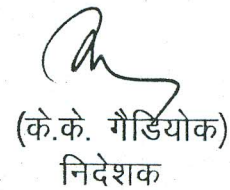 (के.के. गैडियोक)
निदेशक